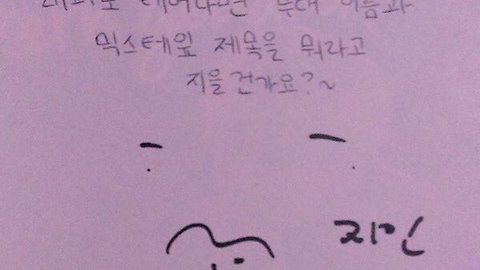 태어나면 무대 이름과
믹스테잎 제목을 뭐라고
지을건가요?~
지민